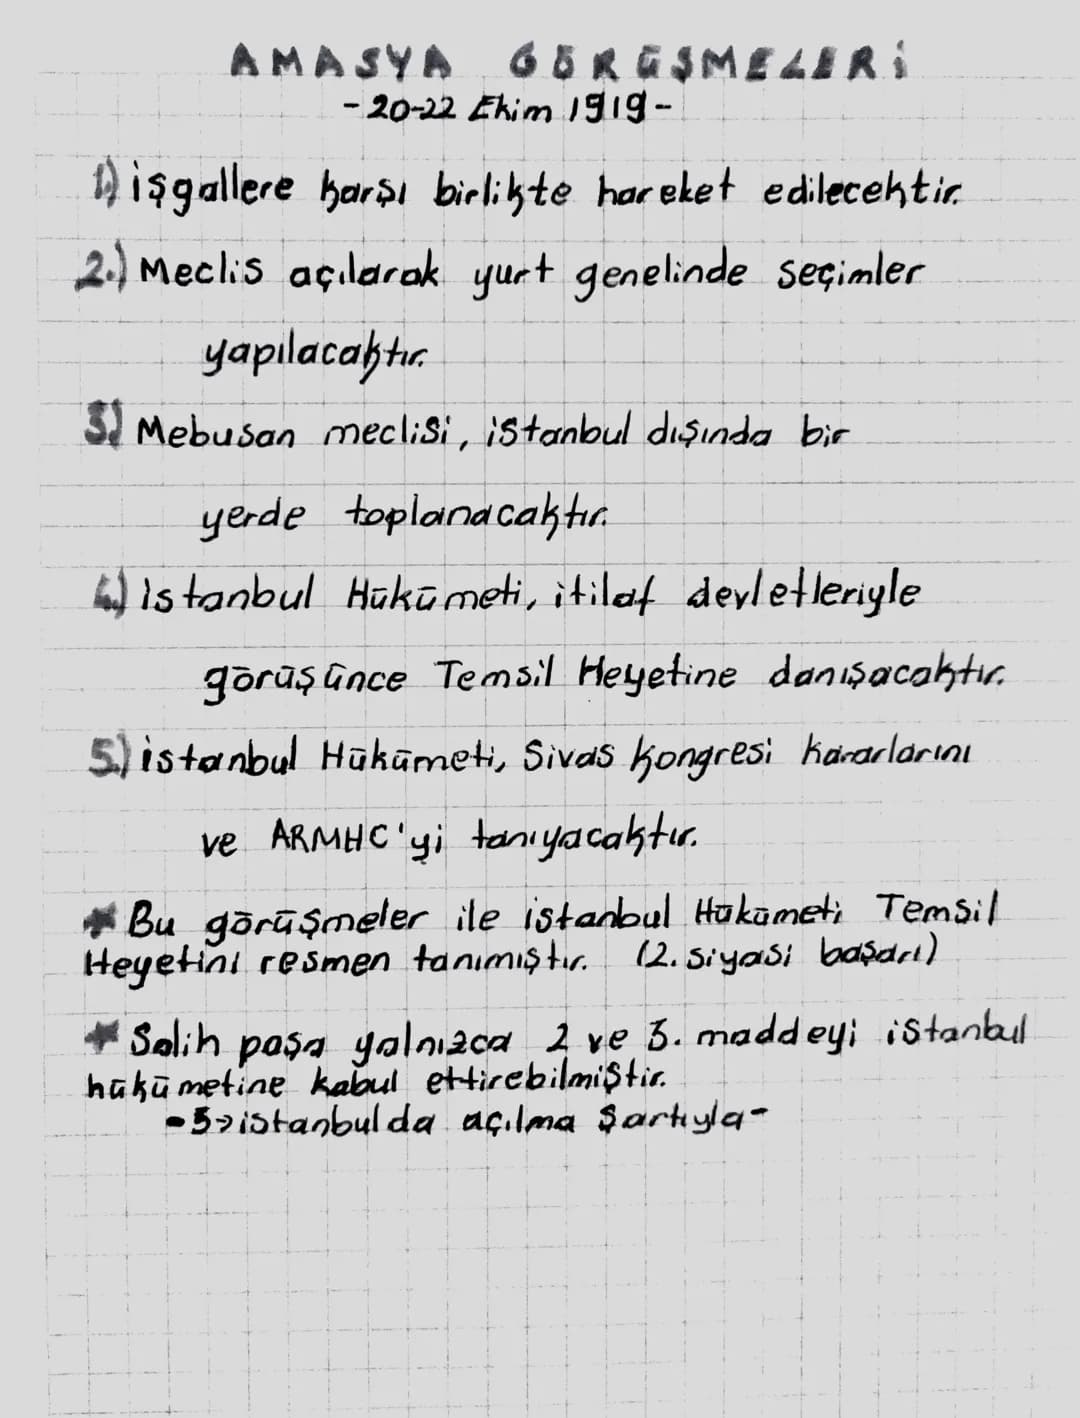 AMASYA GÖRÜŞMELERİ
- 20-22 Ekim 1919 -
1.) işgallere karşı birlikte hareket edilecektir.
2.) Meclis açılarak yurt genelinde seçimler
yapılacaktır.
3.) Mebusan meclisi, istanbul dışında bir
yerde toplanacaktır.
4.) istanbul Hükümeti, itilaf devletleriyle
görüşünce Temsil Heyetine danışacaktır.
5.) istanbul Hükümeti, Sivas Kongresi kararlarını
ve ARMHC'yi tanıyacaktır.
* Bu görüşmeler ile istanbul Hükümeti Temsil
Heyetini resmen tanımıştır. (2. siyasi başarı)
* Salih paşa yalnızca 2 ve 3. maddeyi istanbul
hükümetine kabul ettirebilmiştir.
-3→istanbulda açılma şartıyla-